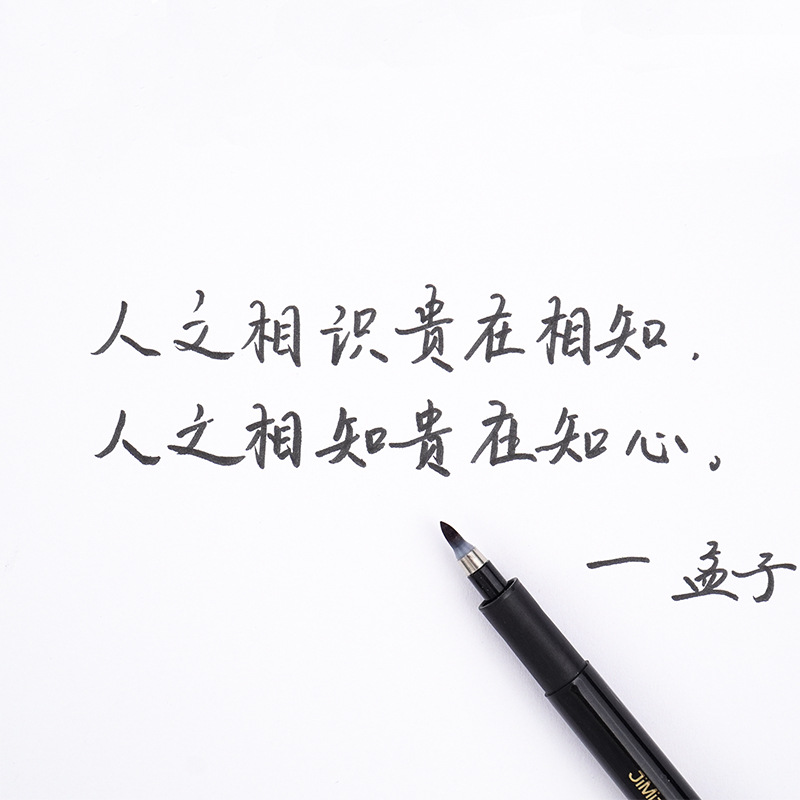 人文相识贵在相知.
人文相知贵在知心。
一孟子
JiMi